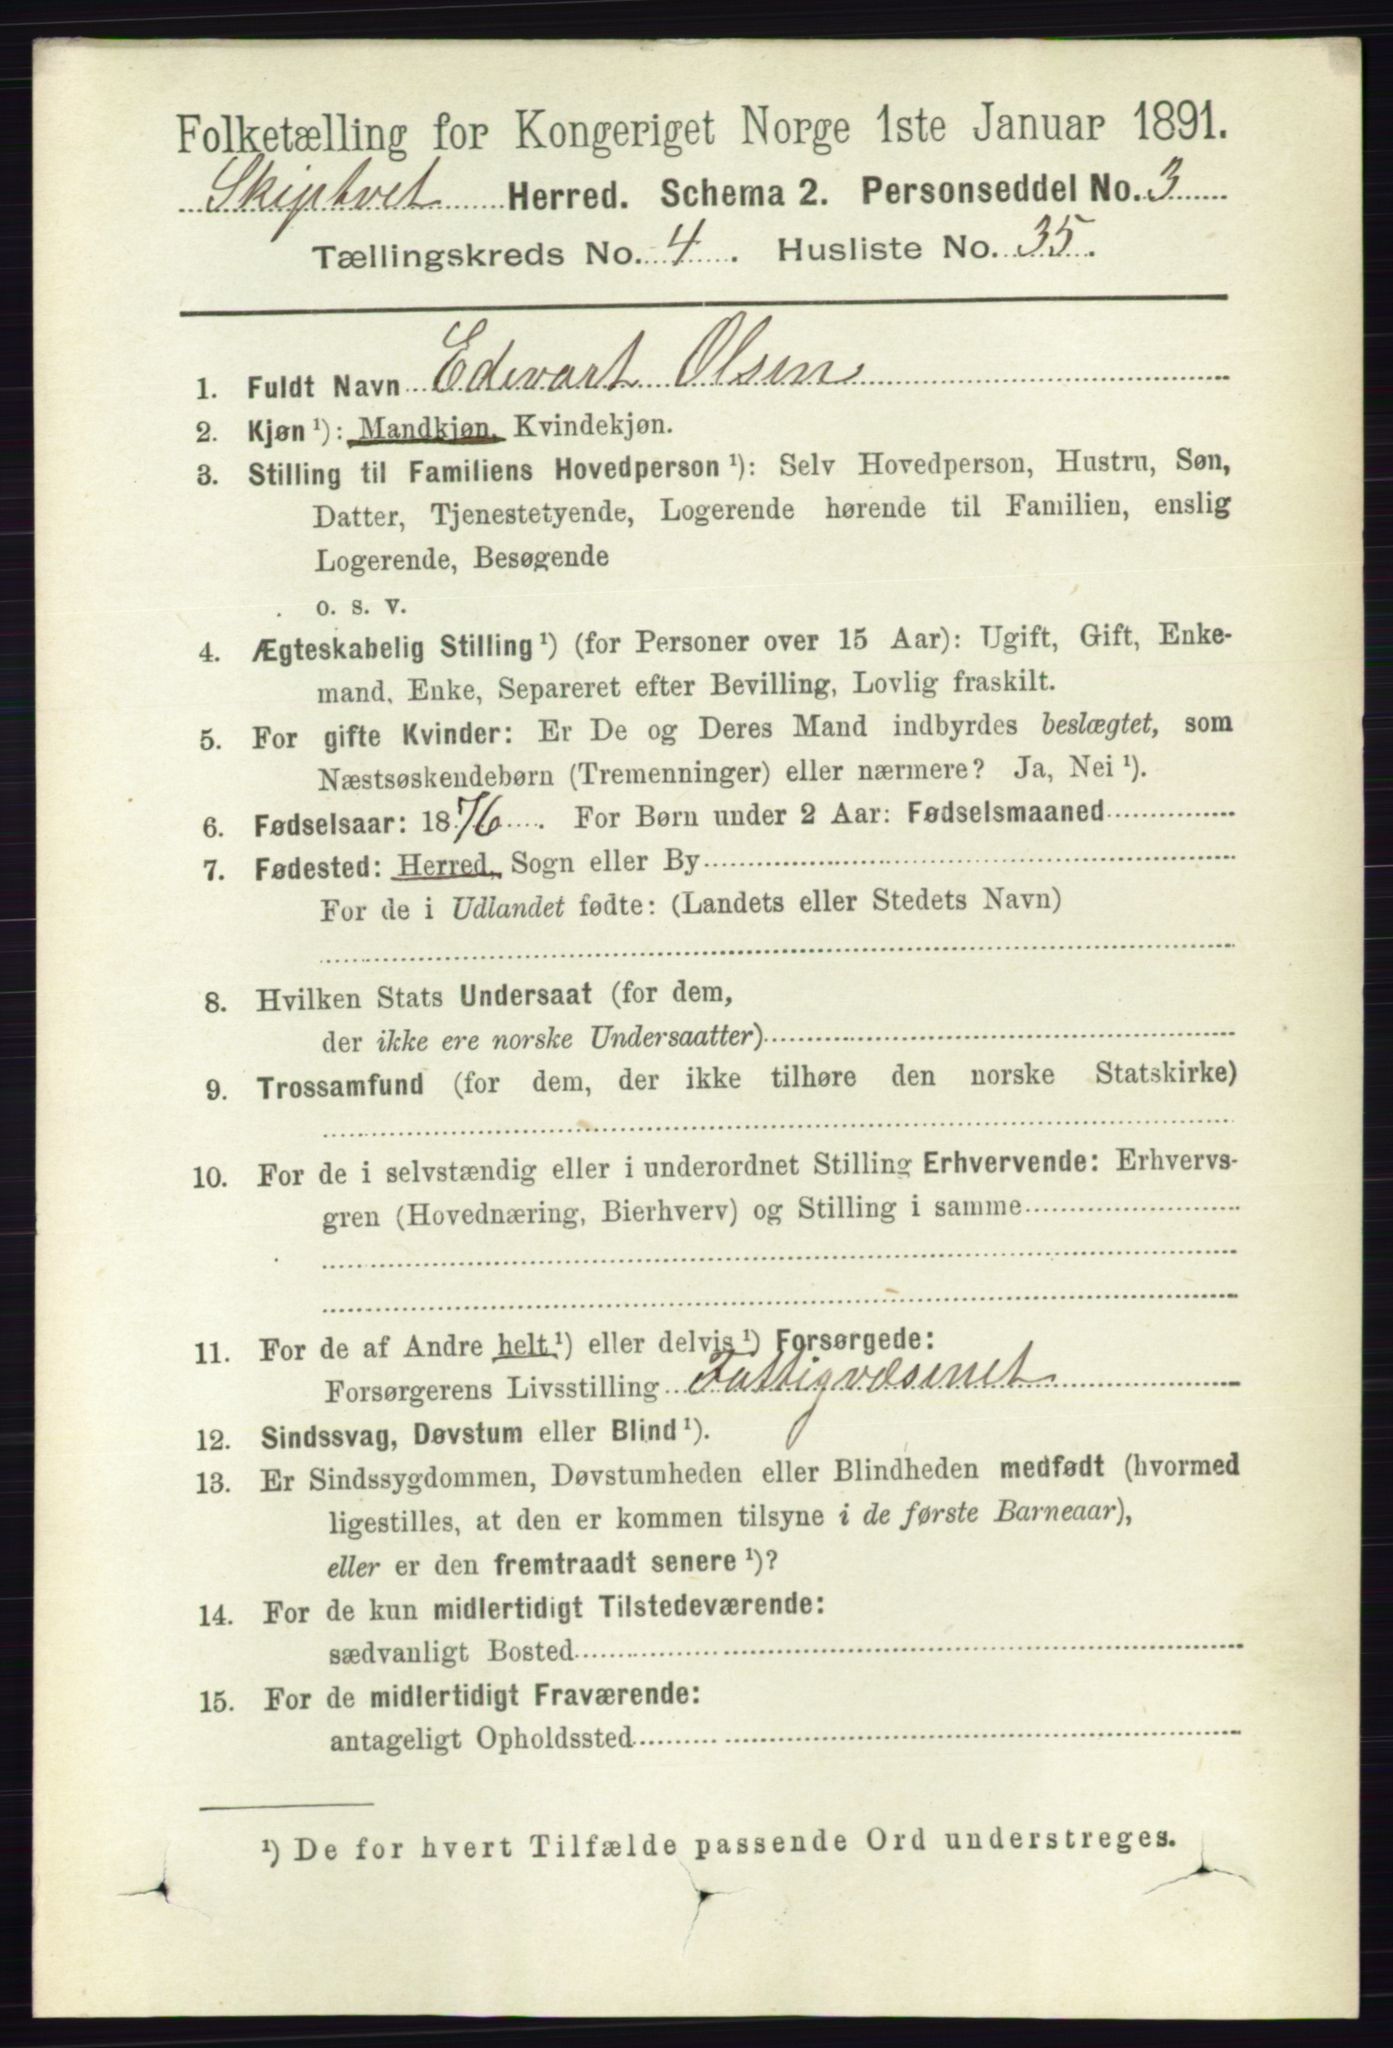 Folketælling for Kongeriget Norge 1ste Januar 1891.
Skiptvet Herred. Schema 2. Personseddel No. 3
Tællingskreds No. 4. Husliste No. 35.
1. Fuldt Navn Edevart Olsen
2. Kjøn ¹): Mandkjøn, Kvindekjøn.
3. Stilling til Familiens Hovedperson ¹): Selv Hovedperson, Hustru, Søn,
Datter, Tjenestetyende, Logerende hørende til Familien, enslig
Logerende, Besøgende
o. s. v.
4. Ægteskabelig Stilling ¹) (for Personer over 15 Aar): Ugift, Gift, Enke-
mand, Enke, Separeret efter Bevilling, Lovlig fraskilt.
5. For gifte Kvinder: Er De og Deres Mand indbyrdes beslægtet, som
Næstsøskendebørn (Tremenninger) eller nærmere? Ja, Nei ¹).
6. Fødselsaar: 1876. For Børn under 2 Aar: Fødselsmaaned
7. Fødested: Herred, Sogn eller By
For de i Udlandet fødte: (Landets eller Stedets Navn)
8. Hvilken Stats Undersaat (for dem,
der ikke ere norske Undersaatter)
9. Trossamfund (for dem, der ikke tilhøre den norske Statskirke)
10. For de i selvstændig eller i underordnet Stilling Erhvervende: Erhvervs-
gren (Hovednæring, Bierhverv) og Stilling i samme
11. For de af Andre helt ¹) eller delvis ¹) Forsørgede:
Forsørgerens Livsstilling Fattigvæsenet
12. Sindssvag, Døvstum eller Blind ¹).
13. Er Sindssygdommen, Døvstumheden eller Blindheden medfødt (hvormed
ligestilles, at den er kommen tilsyne i de første Barneaar),
eller er den fremtraadt senere ¹)?
14. For de kun midlertidigt Tilstedeværende:
sædvanligt Bosted
15. For de midlertidigt Fraværende:
antageligt Opholdssted
¹) De for hvert Tilfælde passende Ord understreges.